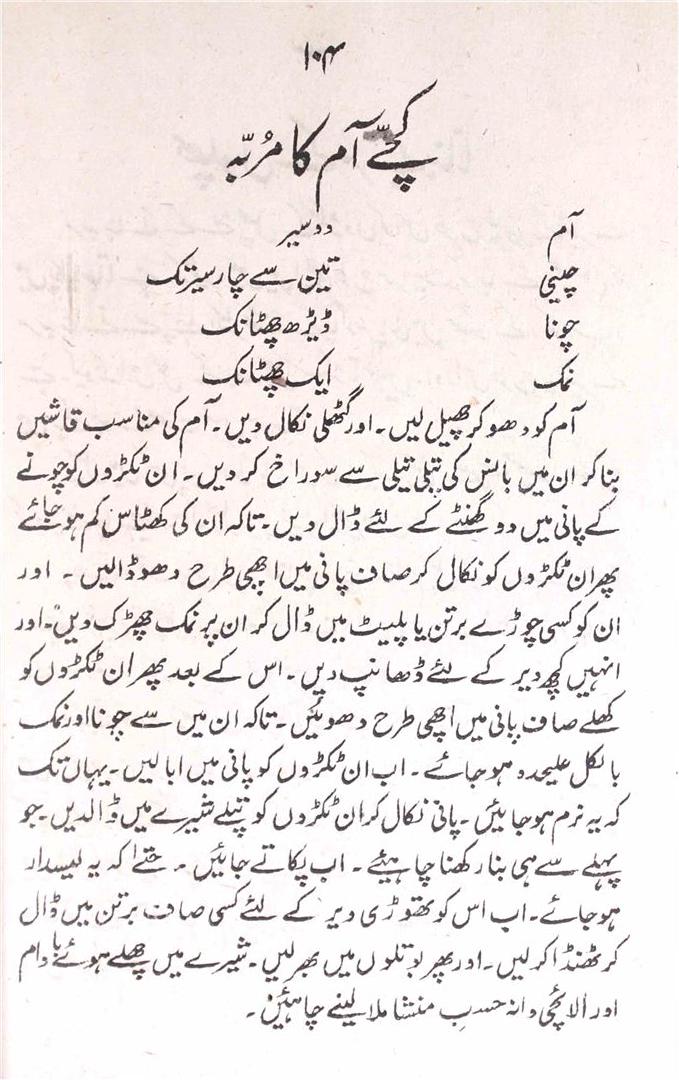 ۱۰۴
کچّے آم کا مُربّہ
آم دو سیر
چینی تین سے چار سیر تک
چونا ڈیڑھ چھٹانک
نمک ایک چھٹانک
آم کو دھو کر چھیل لیں۔ اور گٹھلی نکال دیں۔ آم کی مناسب قاشیں
بنا کر ان میں بانس کی تپلی تیلی سے سوراخ کر دیں۔ ان ٹکڑوں کو چونے
کے پانی میں دو گھنٹے کے لئے ڈال دیں۔ تاکہ ان کی کھٹاس کم ہو جائے
پھر ان ٹکڑوں کو نکال کر صاف پانی میں اچھی طرح دھو ڈالیں۔ اور
ان کو کسی چوڑے برتن یا پلیٹ میں ڈال کر ان پر نمک چھڑک دیں۔ اور
انہیں کچھ دیر کے لئے ڈھانپ دیں۔ اس کے بعد پھر ان ٹکڑوں کو
کھلے صاف پانی میں اچھی طرح دھوئیں۔ تاکہ ان میں سے چونا اور نمک
بالکل علیحدہ ہو جائے۔ اب ان ٹکڑوں کو پانی میں ابالیں۔ یہاں تک
کہ یہ نرم ہو جائیں۔ پانی نکال کر ان ٹکڑوں کو پتلے شیرے میں ڈالدیں۔ جو
پہلے سے ہی بنا رکھنا چاہیئے۔ اب پکاتے جائیں۔ حتےٰ کہ یہ لیسدار
ہو جائے۔ اب اس کو تھوڑی دیر کے لئے کسی صاف برتن میں ڈال
کر ٹھنڈا کر لیں۔ اور پھر بوتلوں میں بھر لیں۔ شیرے میں چھلے ہوئے بادام
اور الائچی دانہ حسبِ منشا ملا لینے چاہئیں۔